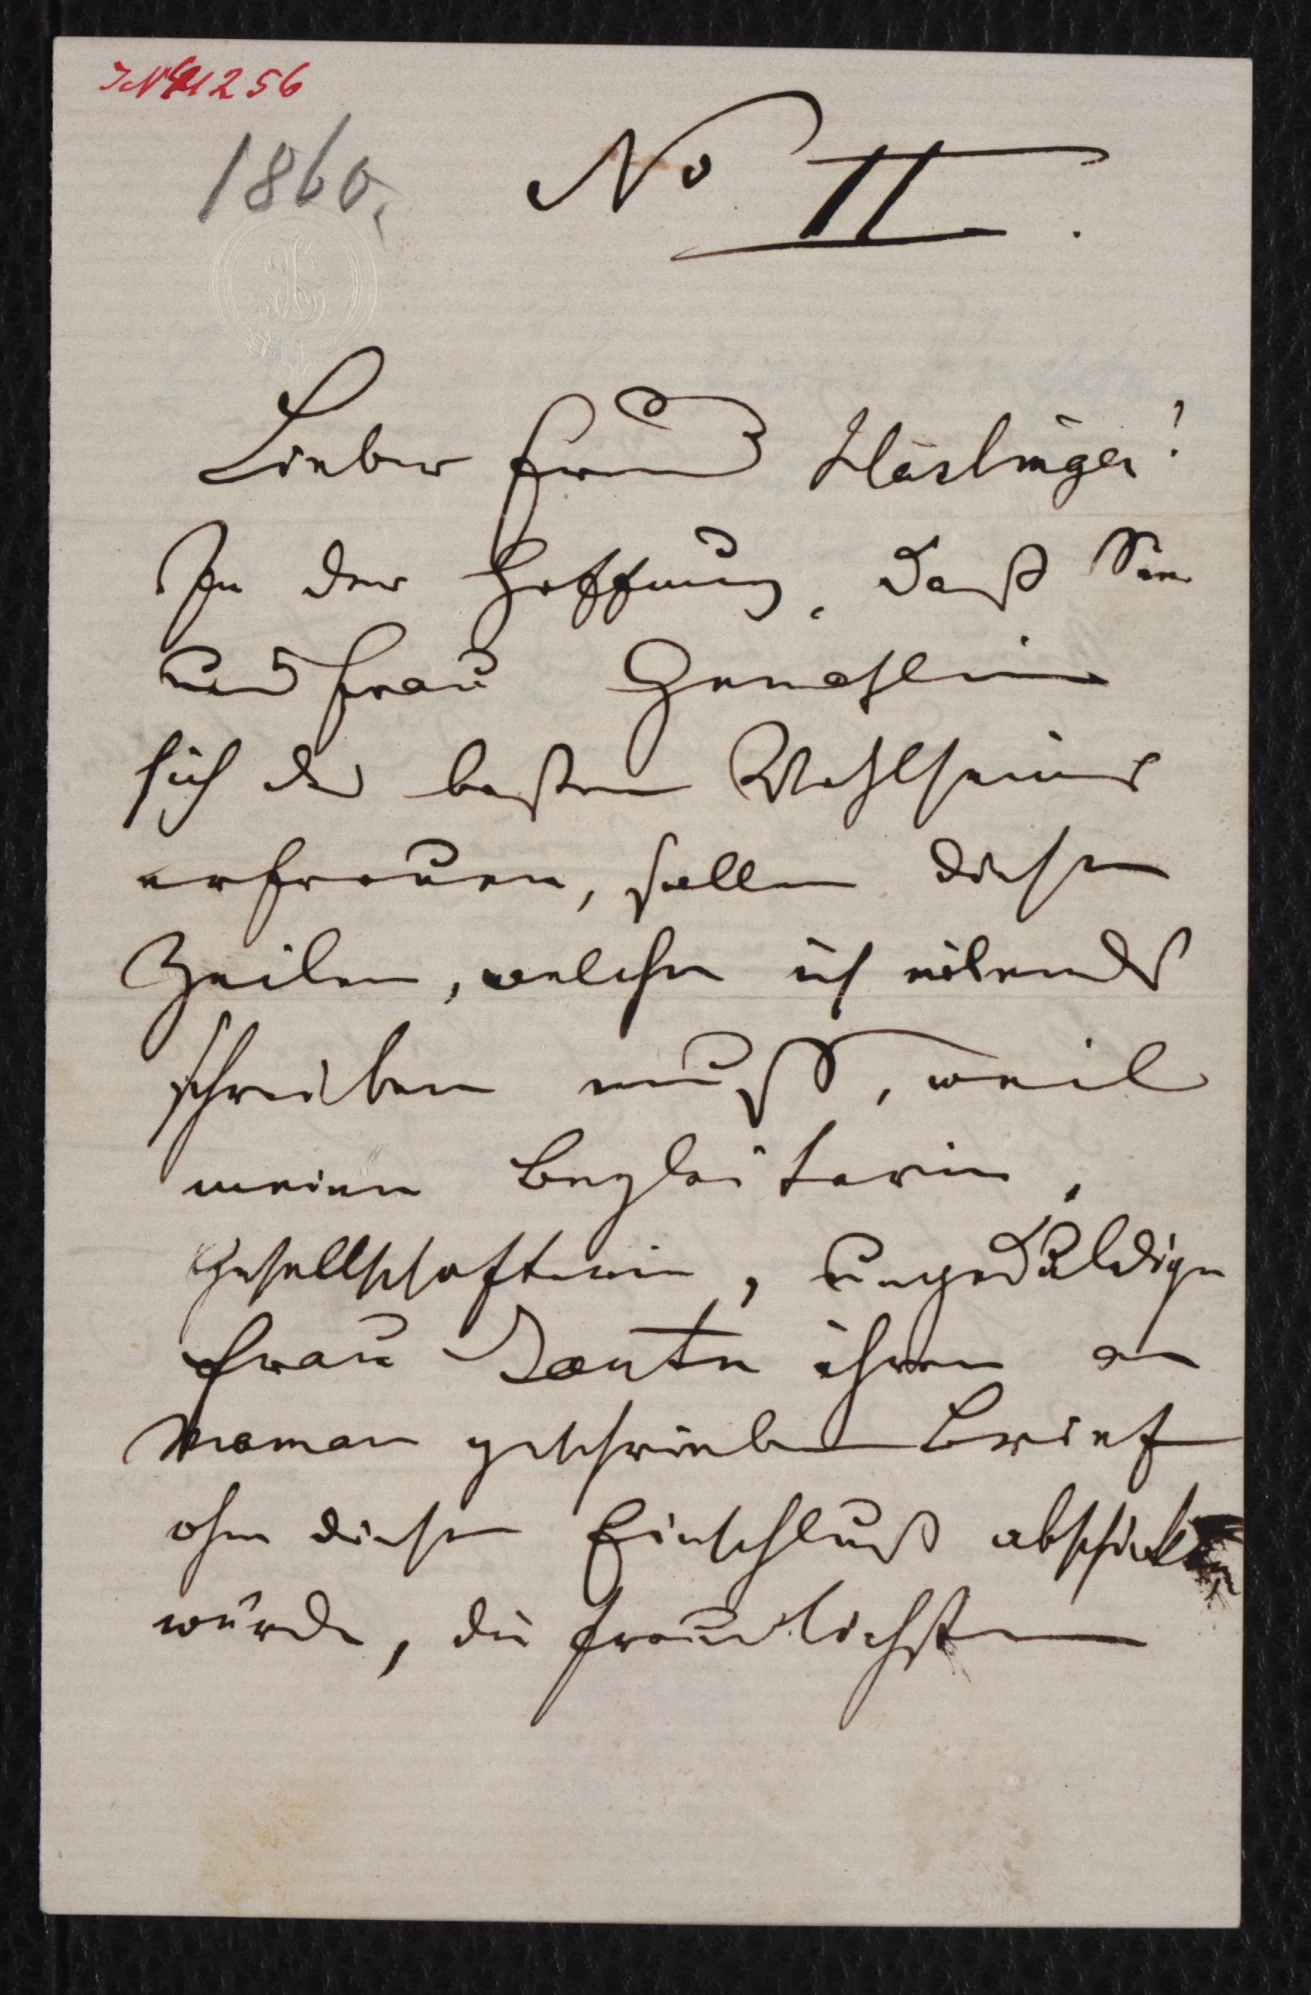 IN 41256
1860.
No II.
Lieber Freund Haslinger!
In der Hoffnung, daß Sie
und Frau Gemahlin
sich des besten Wohlseins
erfreuen, sollen diese
Zeilen, welche ich eilends
schreiben muß, weil
meine Begleiterin,
Gesellschafterin, ungeduldige
Frau Tante ihren an
Maman geschriebenen Brief
ohne diesen Einschluß abschicken
würde, die freundlichsten